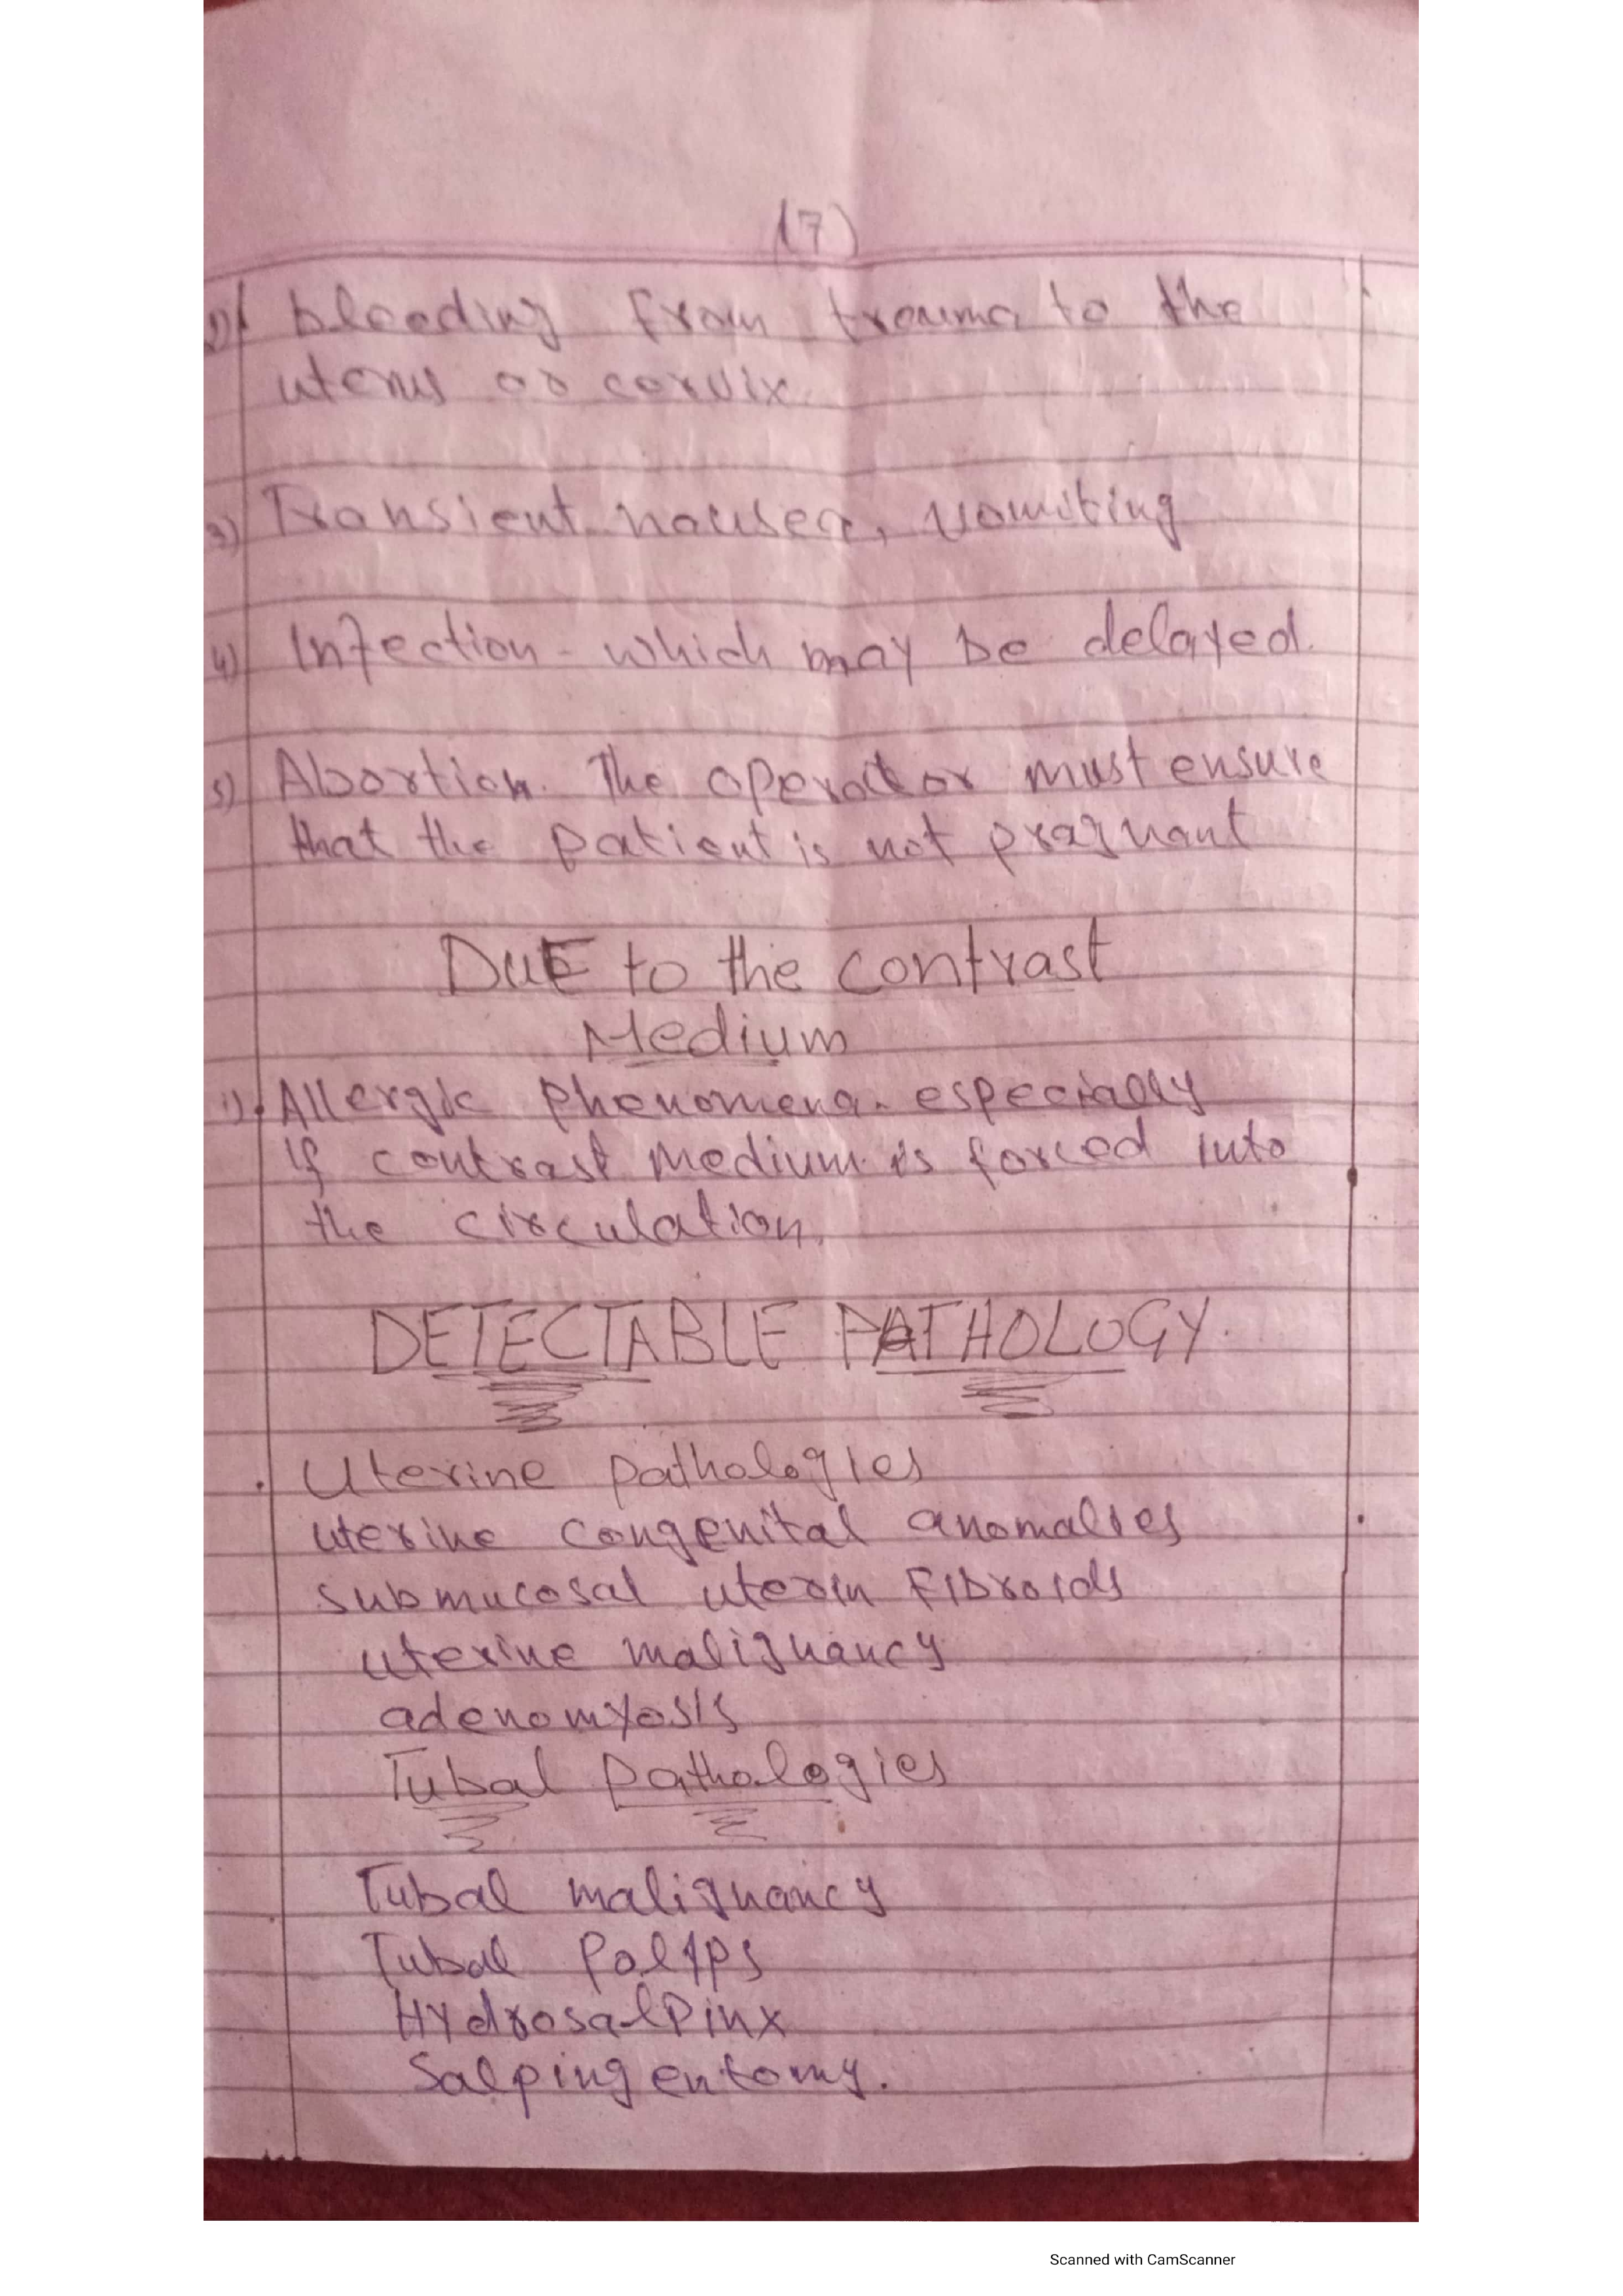 (7)
2) bleeding from trauma to the
uterus or corvix.
3) Transient nausea, vomiting
4) Infection - which may be delayed.
5) Abortion. The operator must ensure
that the patient is not pragnant
DuE to the contrast
Medium
1). Allergic phenomena. especially
if contrast medium is forced into
the circulation.
DETECTABLE PATHOLOGY.
. Uterine pathologies
uterine congenital anomalies
submucosal uterin Fibroids
uterine malignancy
adenomyosis
Tubal pathologies
Tubal malignancy
Tubal Polyps
Hydrosalpinx
Salpingentomy.
Scanned with CamScanner